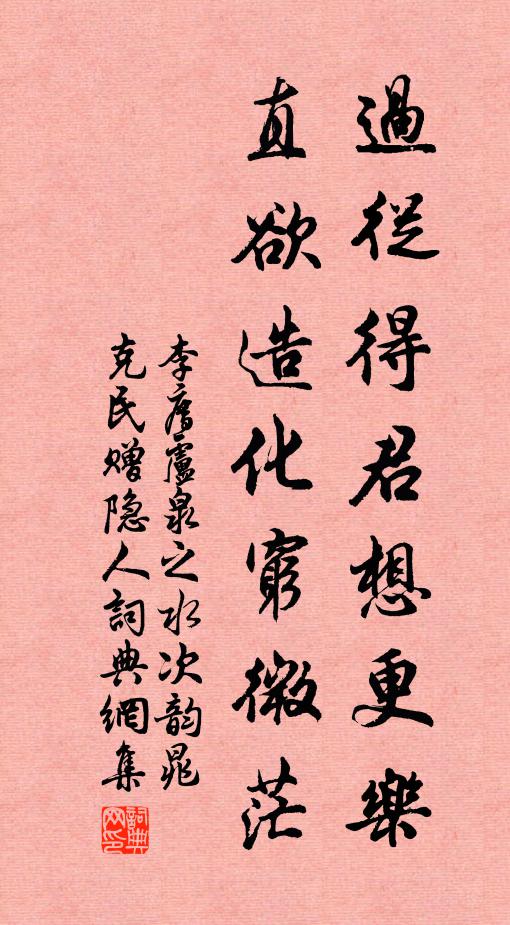 過從得君想更樂
直欲造化窮微茫
李廌廬泉之水次韵晁
克民赠隐人詞典網集
詞典网印